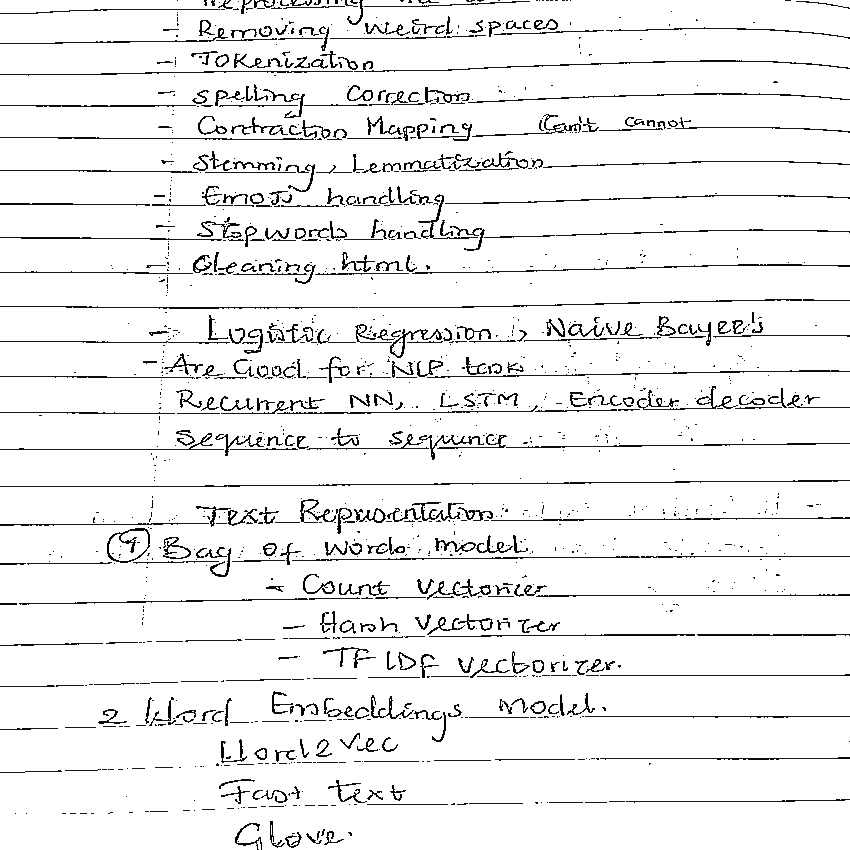 - Removing weird spaces
- Tokenization
- spelling Correction
- Contraction Mapping Can't cannot
- Stemming, Lemmatization
- Emoji handling
- Stopwords handling
- Cleaning html.
-> Logistic Regression, Naive Bayer's
- Are Good for NLP task
Recurrent NN, LSTM, Encoder decoder
Sequence to sequence
Text Representation
① Bag of words model
- Count Vectorizer
- Hash Vectorizer
- TF IDF vectorizer.
2 Word Embeddings Model.
Word2Vec
Fast text
Glove.